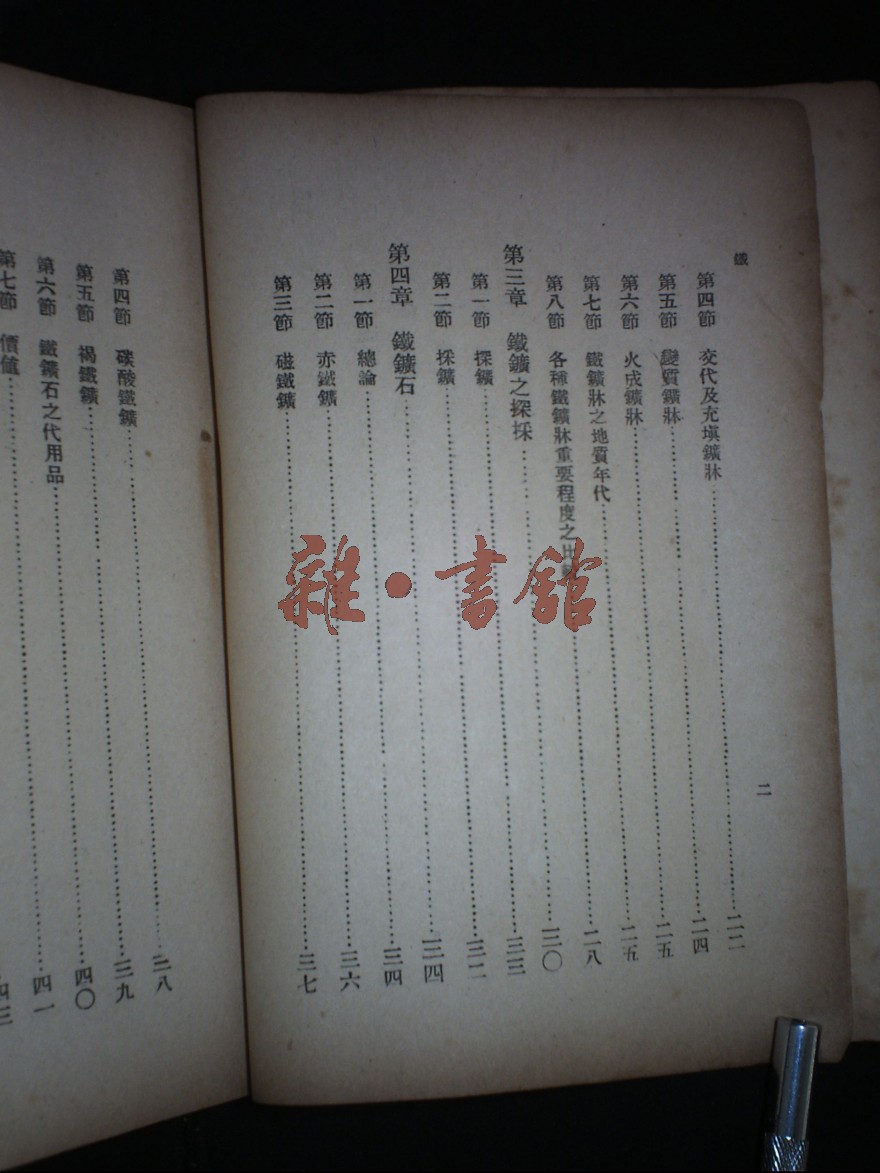 鐵
二
第四節 交代及充填鑛牀……二二
第五節 變質鑛牀……二四
第六節 火成鑛牀……二五
第七節 鐵鑛牀之地質年代……二五
第八節 各種鐵鑛牀重要程度之比較……二八
第三章 鐵鑛之探採……三〇
第一節 探鑛……
第二節 採鑛……三二
第四章 鐵鑛石……三四
第一節 總論……三四
第二節 赤鐵鑛……三六
第三節 磁鐵鑛……三七
第四節 碳酸鐵鑛……三八
第五節 褐鐵鑛……三九
第六節 鐵鑛石之代用品……四〇
第七節 價值……四一
四三
雜·書館